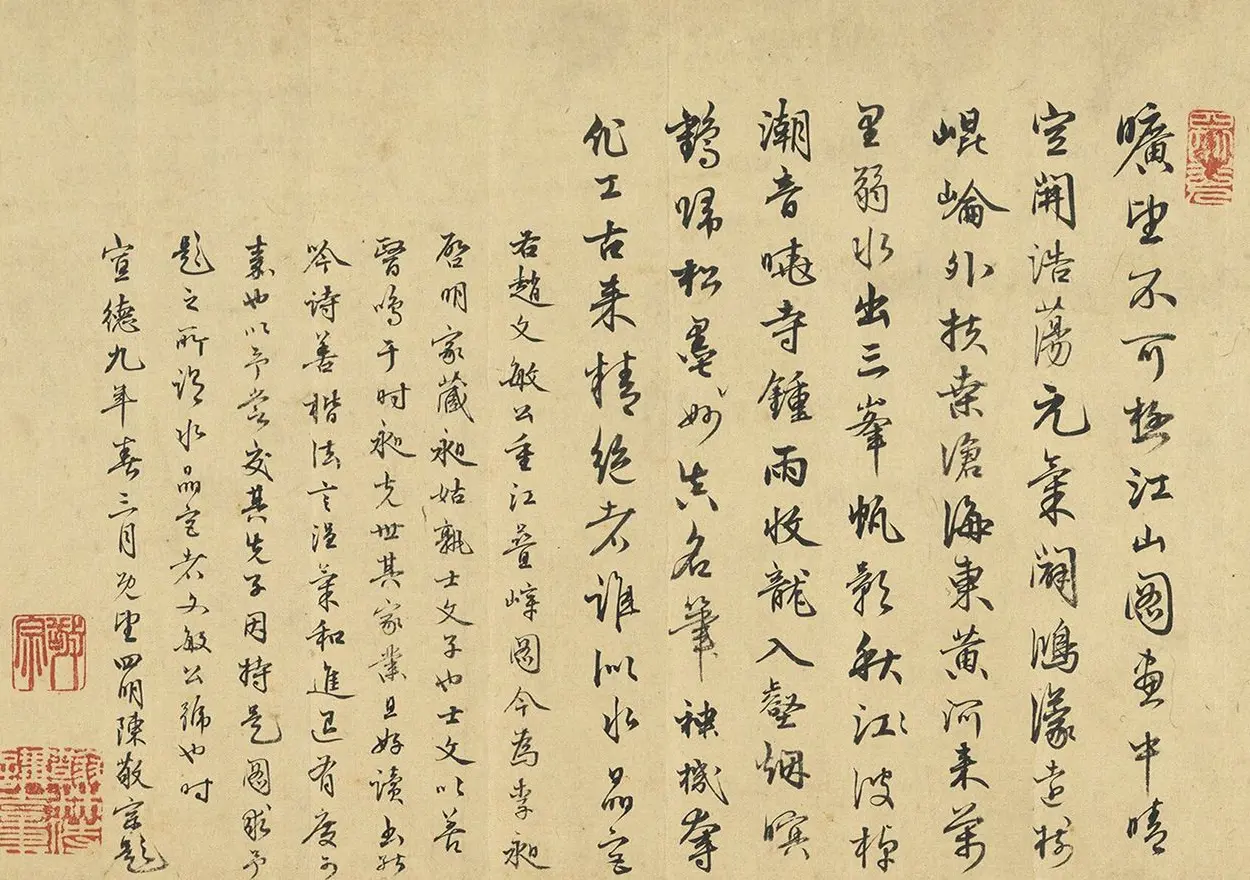 曠望不可極江山圖畫中晴
空開浩蕩元氣闢鴻濛遠樹
崐崘外扶桒滄海東黃河来萬
里弱水出三峯帆影秋江江波棹
潮音曉寺鍾雨收龍入壑烟暝
鶴歸松墨妙真名筆神機奪
化工古来精絶者誰似水晶宮
右趙文敏公重江疊嶂圖今為李昶
啓明家藏昶姑孰士文子也士文以善
醫鳴于时昶克世其家業且好讀書能
吟诗善楷法言温氣和進退有度可
嘉也以予嘗交其先子因持是圖求予
題之所谓水晶宮者文敏公號也时
宣德九年春三月既望四明陳敬宗題
敬宗